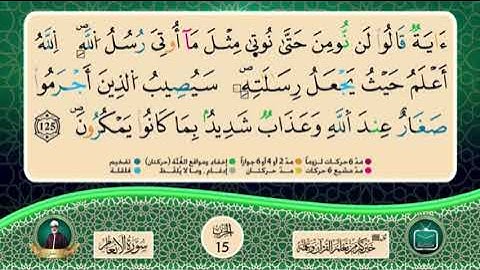 ءَايَةٌ قَالُوا۟ لَن نُّومِنَ حَتَّىٰ نُوتِىٰ مِثْلَ مَآ أُوتِىَ رُسُلُ ٱللَّهِ ۘ ٱللَّهُ
أَعْلَمُ حَيْثُ يَجْعَلُ رِسَلَتِهِۦ ۗ سَيُصِيبُ ٱلَّذِينَ أَجْرَمُوا۟
صَغَارٌ عِندَ ٱللَّهِ وَعَذَابٌ شَدِيدٌۢ بِمَا كَانُوا۟ يَمْكُرُونَ 125
مدّ 6 حركات لزوماً مدّ 2 أو 4 أو 6 جوازاً إخفاء ومواقع الغُنَّة (حركتان) تفخيم
مدّ مشبع 6 حركات مدّ حركتان إدغام، وما لا يُلفظ قلقلة
سورة الأنعام
الحزب
15
خيركم من تعلم القرآن وعلمه